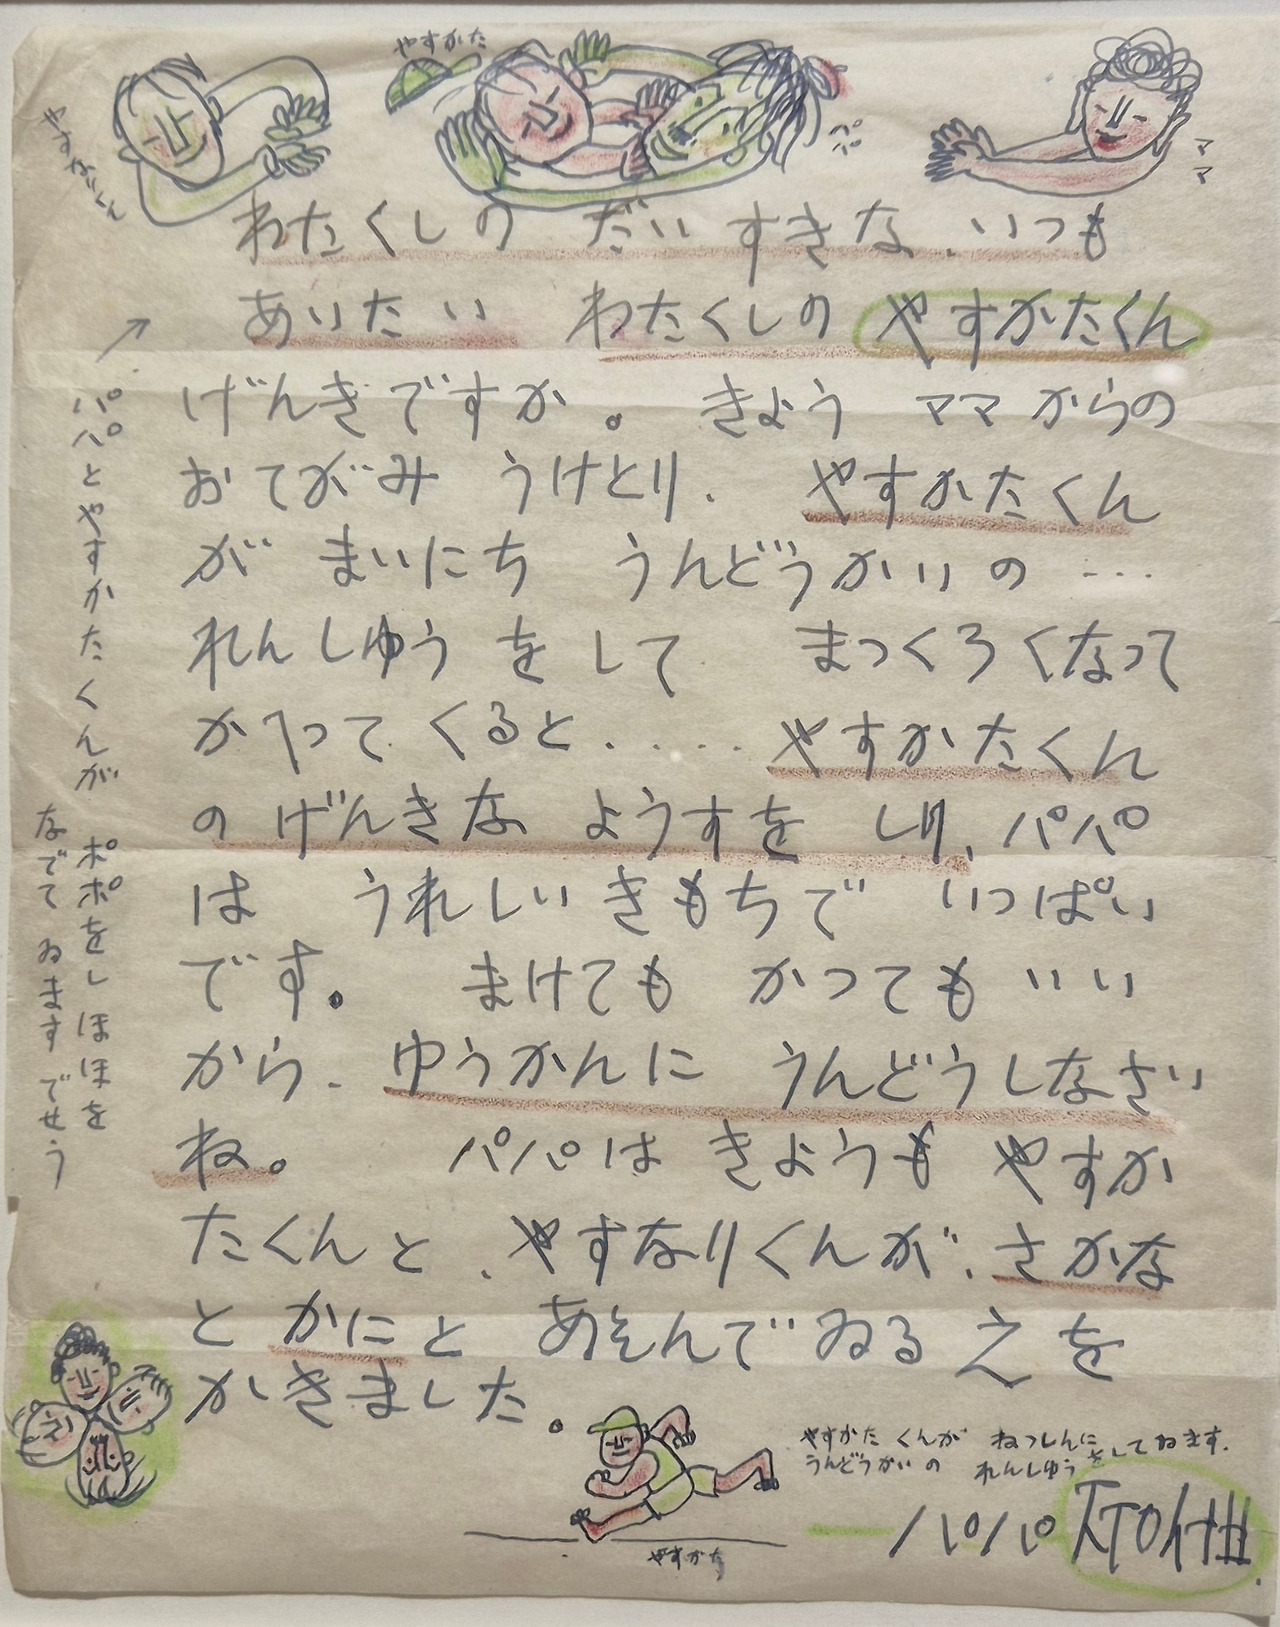 やすなりくん
やすかた
パパ
ママ
わたくしの だいすきな いつも
あいたい わたくしの やすかたくん
げんきですか。 きょう ママからの
おてがみ うけとり、 やすかたくん
が まいにち うんどうかいの …
れんしゆう をして まっくろくなって
かへって くると..... やすかたくん
のげんきな ようすを しり、パパ
は うれしい きもちで いっぱい
です。 まけても かつても いい
から、 ゆうかんに うんどうしなさい
ね。 パパは きようも やすか
たくんと、やすなりくんが、さかな
と かにと あそんでゐる えを
かきました。
パパとやすかたくんが
ポポをしほほを
なでて ゐますでせう
やすかた くんが ねつしんに
うんどうかいの れんしゆうをしてゐます.
やすかた
パパ